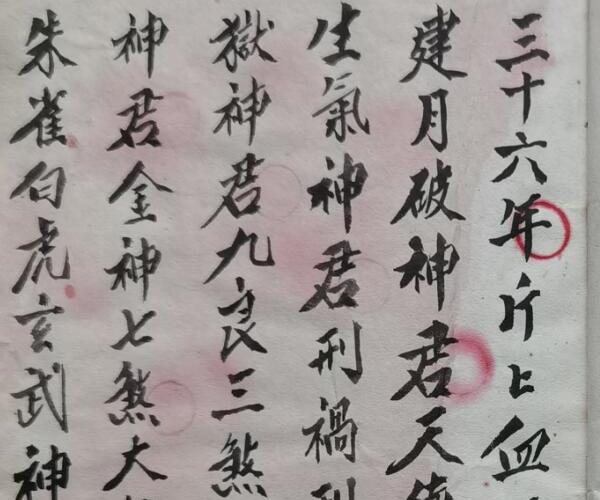 三十六年斤上血
建月破神君天
生氣神君刑禍刑
獄神君九良三煞
神君金神七煞大
朱雀白虎玄武神